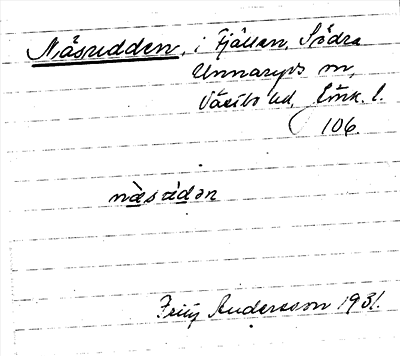 Näsudden, i Fjällen, Södra
Unnaryds sn,
Västbo hd, Jönk. l.
106.
näsùdən
Fritz Andersson 1931.